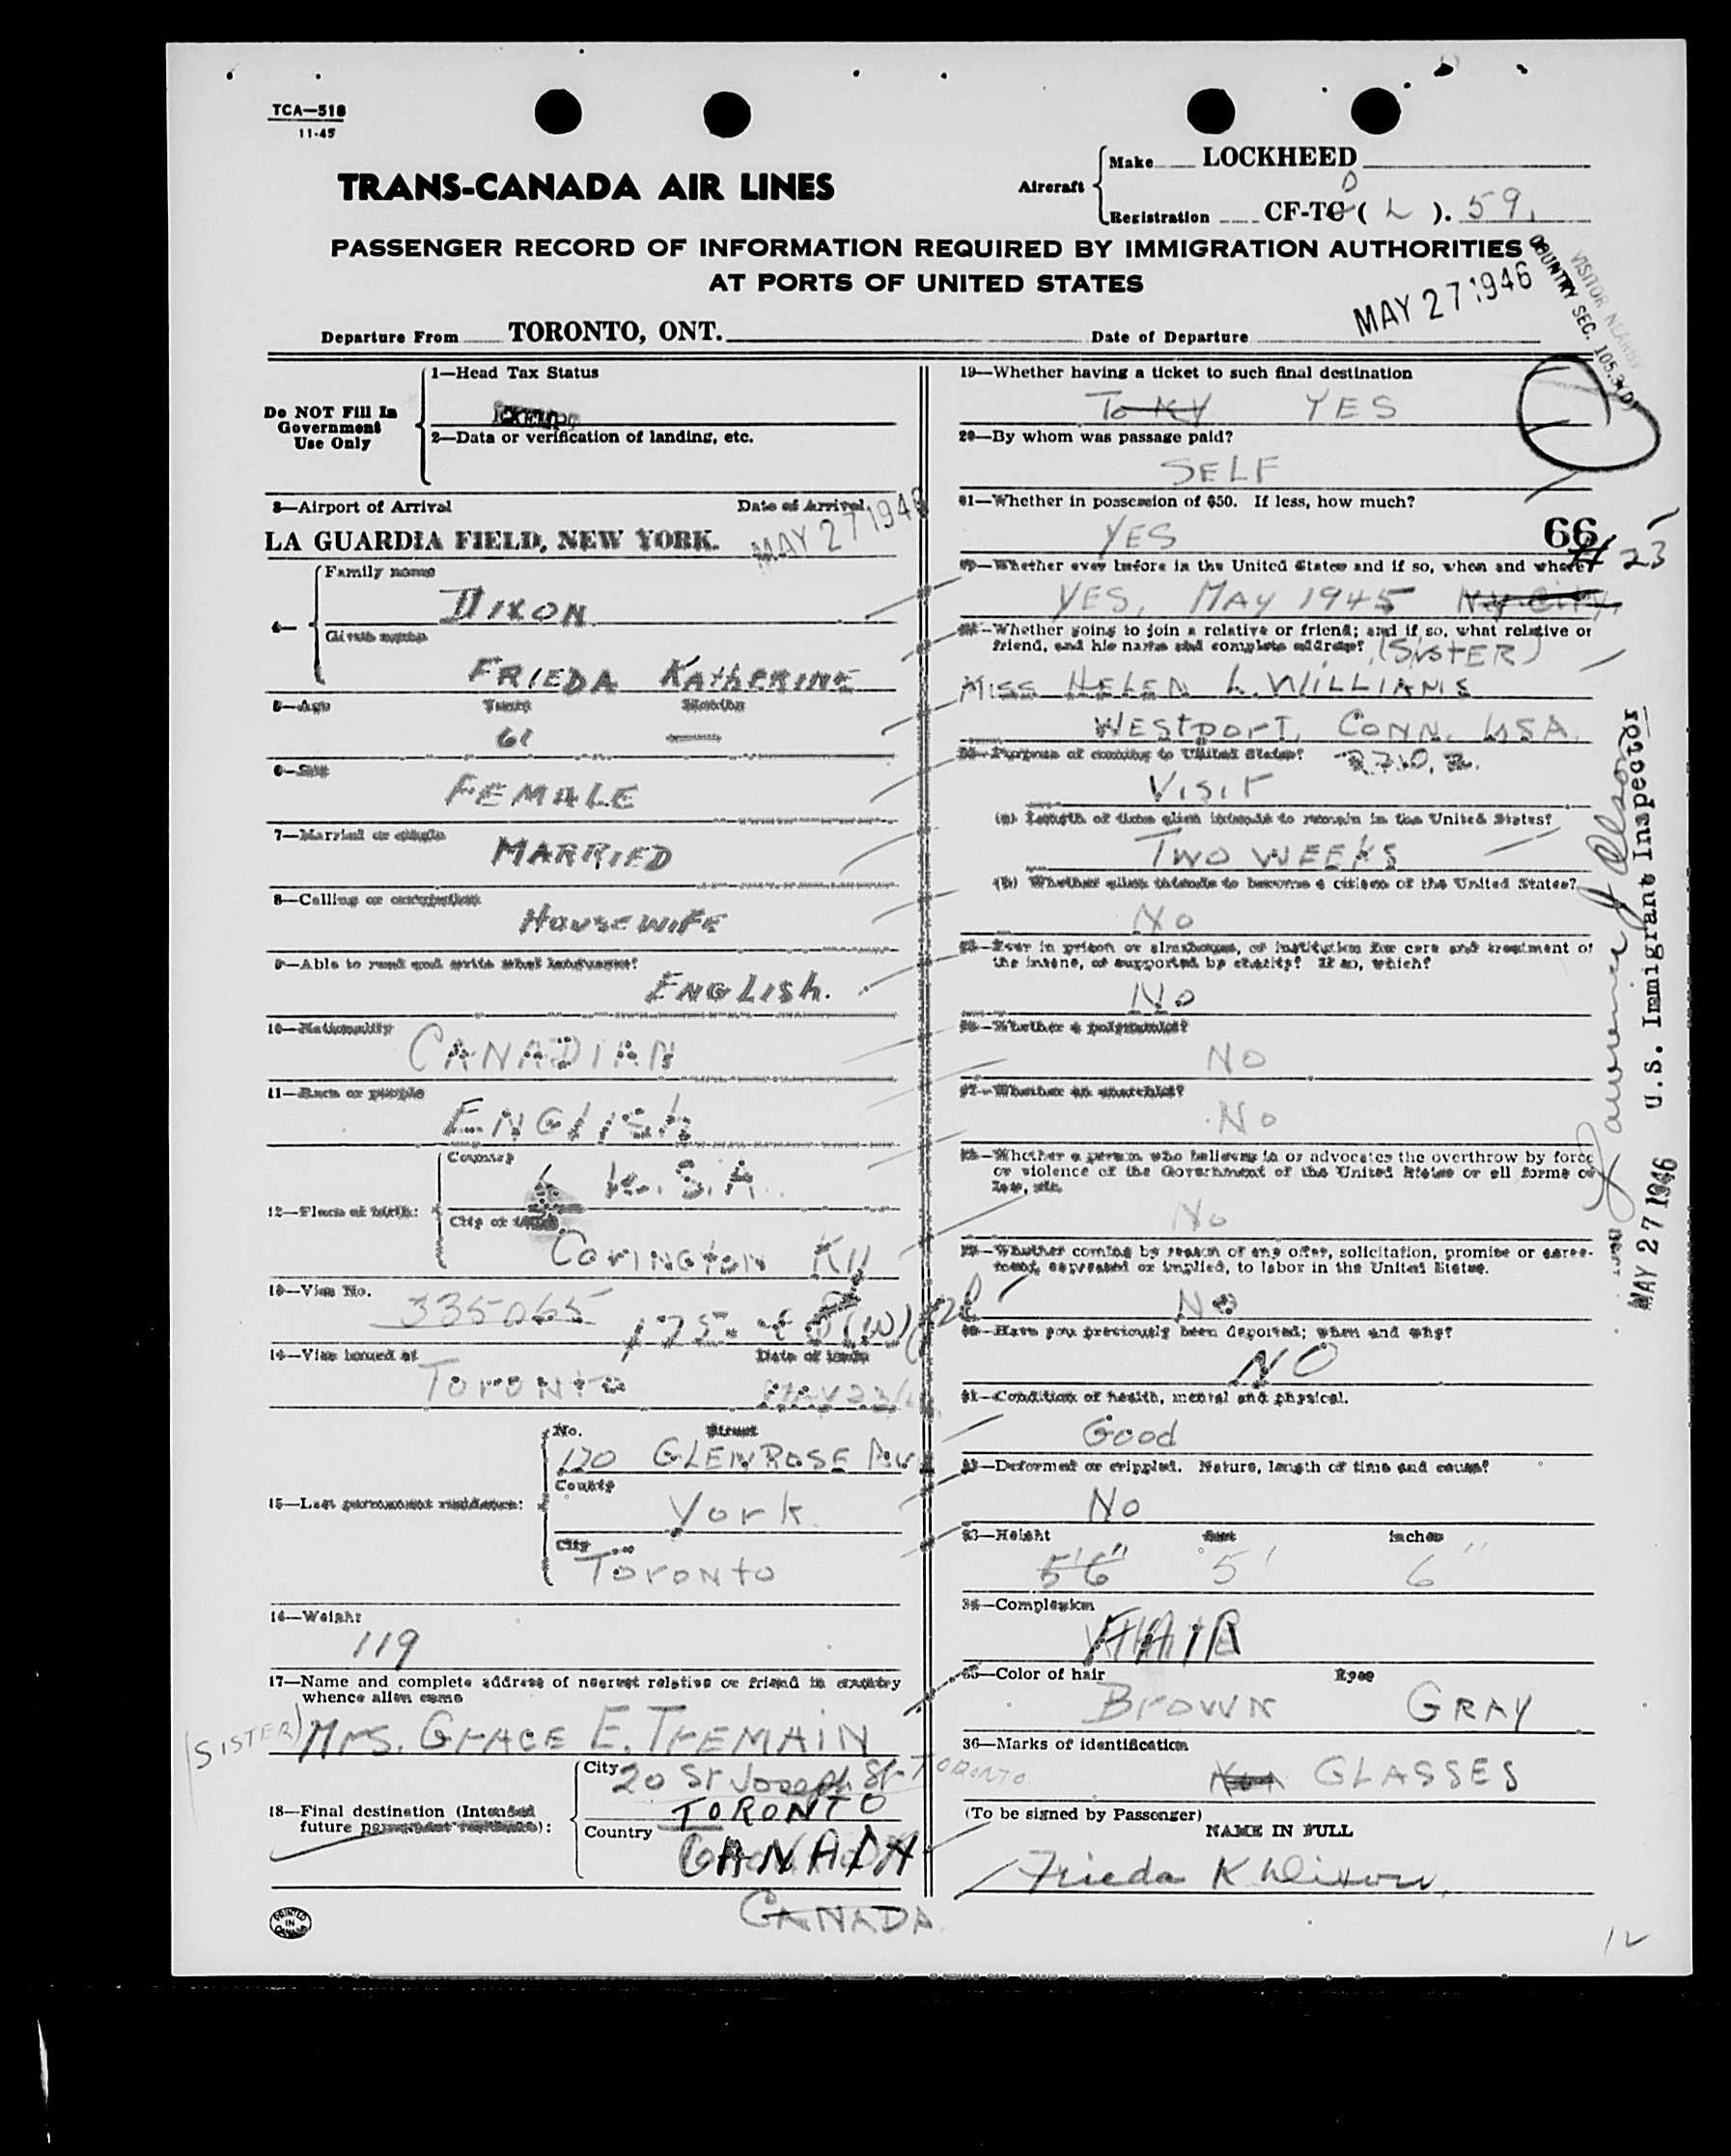 TCA—518
11-45
TRANS-CANADA AIR LINES
Aircraft
Make LOCKHEED
Registration CF-TC D ( L ). 59.
PASSENGER RECORD OF INFORMATION REQUIRED BY IMMIGRATION AUTHORITIES
AT PORTS OF UNITED STATES
VISITOR
COUNTRY SEC. 105.3(D)
Departure From TORONTO, ONT.
Date of Departure MAY 27 1946
Do NOT Fill In
Government
Use Only
1—Head Tax Status
EXEMPT
2—Data or verification of landing, etc.
3—Airport of Arrival Date of Arrival
LA GUARDIA FIELD, NEW YORK. MAY 27 1946
4—
Family name
DIXON
Given name
FRIEDA KAthERINE
5—Age Years Months
61 —
6—Sex
FEMALE
7—Married or single
MARRIED
8—Calling or occupation
HousEWIFE
9—Able to read and write what language?
ENGLISh.
10—Nationality
CANADIAN
11—Race or people
ENGLISh
12—Place of birth:
Country
U.S.A.
City or town
COVINGTON KY
13—Visa No.
335065
14—Visa issued at Date of issue
TORONTO MAY 23/46
15—Last permanent residence:
No. Street
120 GLENROSE AVE
County
York
City
Toronto
16—Weight
119
17—Name and complete address of nearest relative or friend in country
whence alien came
(SISTER) Mrs. GrACE E. TrEMAIN
20 St Joseph St TORONTO
18—Final destination (Intended
future permanent residence):
City
TORONTO
Country
CANADA
CANADA
PRINTED
IN
CANADA
19—Whether having a ticket to such final destination
To KY YES
20—By whom was passage paid?
SELF
21—Whether in possession of $50. If less, how much?
YES
66
23
22—Whether ever before in the United States and if so, when and where?
YES, MAY 1945 N.Y. CITY,
23—Whether going to join a relative or friend; and if so, what relative or
friend, and his name and complete address? (SISTER)
MISS HELEN L. WILLIAMS
WESTPORT, CONN. USA.
24—Purpose of coming to United States?
VISIT
(a) Length of time alien intends to remain in the United States?
TWO WEEKS
(b) Whether alien intends to become a citizen of the United States?
No
25—Ever in prison or almshouse, or institution for care and treatment of
the insane, or supported by charity? If so, which?
No
26—Whether a polygamist?
NO
27—Whether an anarchist?
No
28—Whether a person who believes in or advocates the overthrow by force
or violence of the Government of the United States or all forms of
law, etc.
No
29—Whether coming by reason of any offer, solicitation, promise or agree-
ment, expressed or implied, to labor in the United States.
No
30—Have you previously been deported; when and why?
NO
31—Condition of health, mental and physical.
Good
32—Deformed or crippled. Nature, length of time and cause?
No
33—Height feet inches
5'6" 5' 6"
34—Complexion
FAIR
35—Color of hair Eyes
BROWN GRAY
36—Marks of identification
GLASSES
(To be signed by Passenger)
NAME IN FULL
Frieda K Dixon
12
U.S. Immigrant Inspector
MAY 27 1946